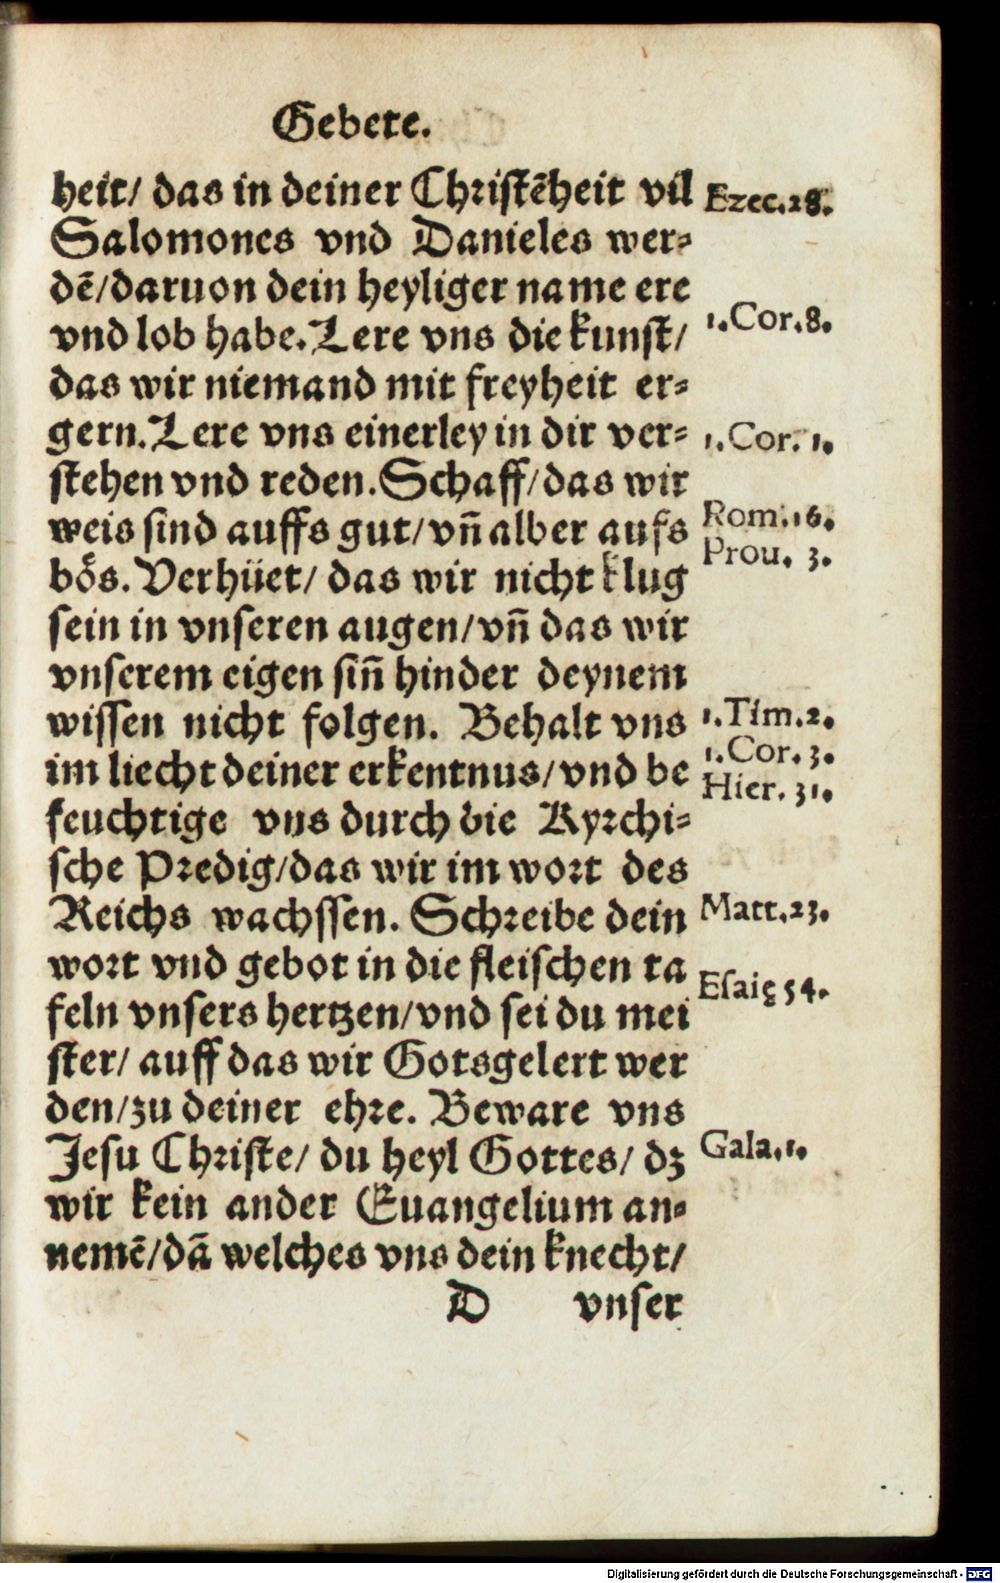 Gebete.
heit/ das in deiner Christẽheit vil
Ezec.28.
Salomones vnd Danieles wer-
dẽ/daruon dein heyliger name ere
vnd lob habe. Lere vns die kunst/
1.Cor.8.
das wir niemand mit freyheit er-
gern. Lere vns einerley in dir ver-
1.Cor. 1.
stehen vnd reden. Schaff/das wir
weis sind auffs gut/vñ alber aufs
Rom.16.
bo̊s. Verhüet/ das wir nicht klug
Prou. 3.
sein in vnseren augen/vñ das wir
vnserem eigen siñ hinder deynem
wissen nicht folgen. Behalt vns
1.Tim.2.
im liecht deiner erkentnus/vnd be
1.Cor.3.
Hier. 31.
feuchtige vns durch die Kyrchi-
sche Predig/das wir im wort des
Reichs wachssen. Schreibe dein
Matt.23.
wort vnd gebot in die fleischen ta
Esaię 54.
feln vnsers hertzen/vnd sei du mei
ster/ auff das wir Gotsgelert wer
den/zu deiner ehre. Beware vns
Jesu Christe/ du heyl Gottes/ dz
Gala.1.
wir kein ander Euangelium an-
nemẽ/dã welches vns dein knecht/
D vnser
Digitalisierung gefördert durch die Deutsche Forschungsgemeinschaft - DFG